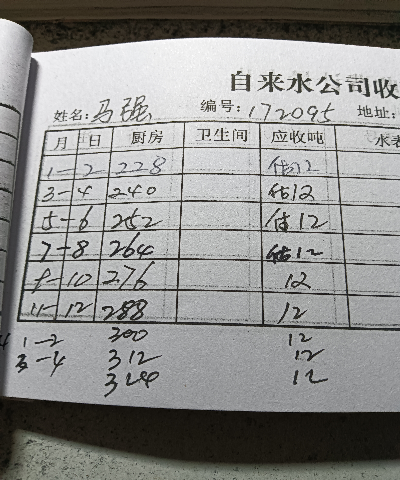 自来水公司收
姓名: 马强 编号: 172095 地址:
月 日 厨房 卫生间 应收吨 水表
1-2 228 估12
3-4 240 估12
5-6 252 估12
7-8 264 估12
9-10 276 12
11-12 288 12
1-2 300 12
3-4 312 12
324 12